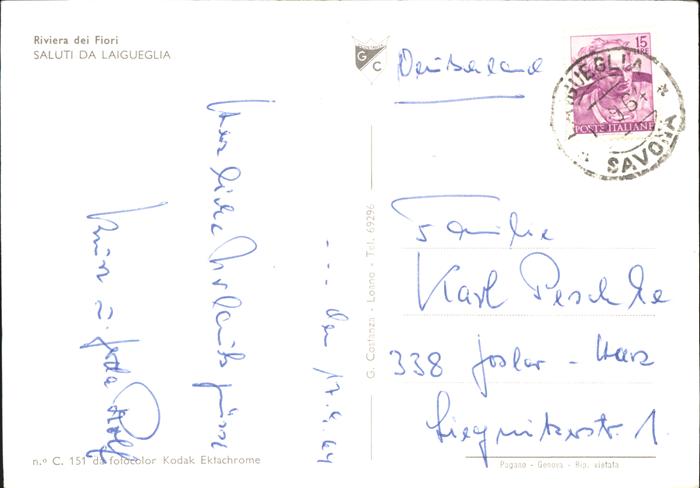 Riviera dei Fiori
SALUTI DA LAIGUEGLIA
G C
Deutschland
15
LIRE
POSTE ITALIANE
LAIGUEGLIA
SAVONA
... den 17.9.64
Herzliche Urlaubsgrüsse
Familie
Karl Peschke
338 Goslar - Harz
Liegnitzerstr. 1.
G. Costanza - Loano - Tel. 69296
n.° C. 151 da fotocolor Kodak Ektachrome
Pagano - Genova - Rip. vietata